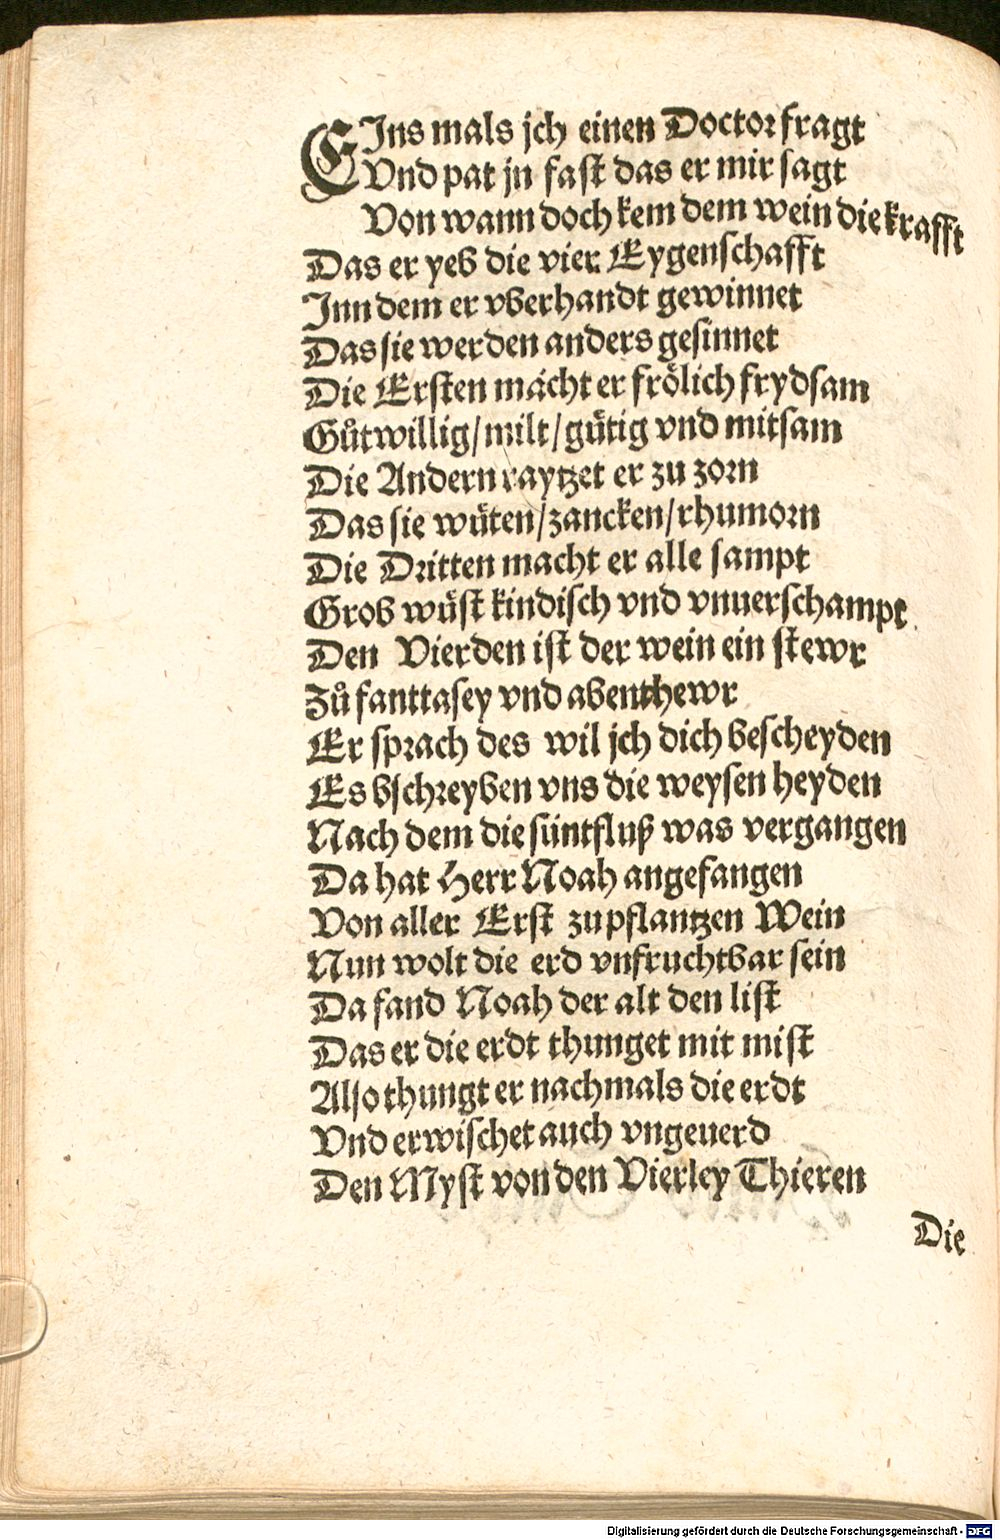 EJns mals jch einen Doctor fragt
Vnd pat jn fast das er mir sagt
Von wann doch kem dem wein die krafft
Das er yeb die vier Eygenschafft
Jnn dem er vberhandt gewinnet
Das sie werden anders gesinnet
Die Ersten macht er froͤlich frydsam
Guͦtwillig/milt/guͤtig vnd mitsam
Die Andern raytzet er zu zorn
Das sie wuͤten/zancken/rhumorn
Die Dritten macht er alle sampt
Grob wuͤst kindisch vnd vnuerschampt
Den Vierden ist der wein ein stewr
Zuͦ fanttasey vnd abenthewr
Er sprach des wil jch dich bescheyden
Es bschreyben vns die weysen heyden
Nach dem die süntfluß was vergangen
Da hat Herr Noah angefangen
Von aller Erst zu pflantzen Wein
Nun wolt die erd vnfruchtbar sein
Da fand Noah der alt den list
Das er die erdt thunget mit mist
Also thungt er nachmals die erdt
Vnd erwischet auch vngeuerd
Den Myst von den Vierley Thieren
Die
Digitalisierung gefördert durch die Deutsche Forschungsgemeinschaft - DFG